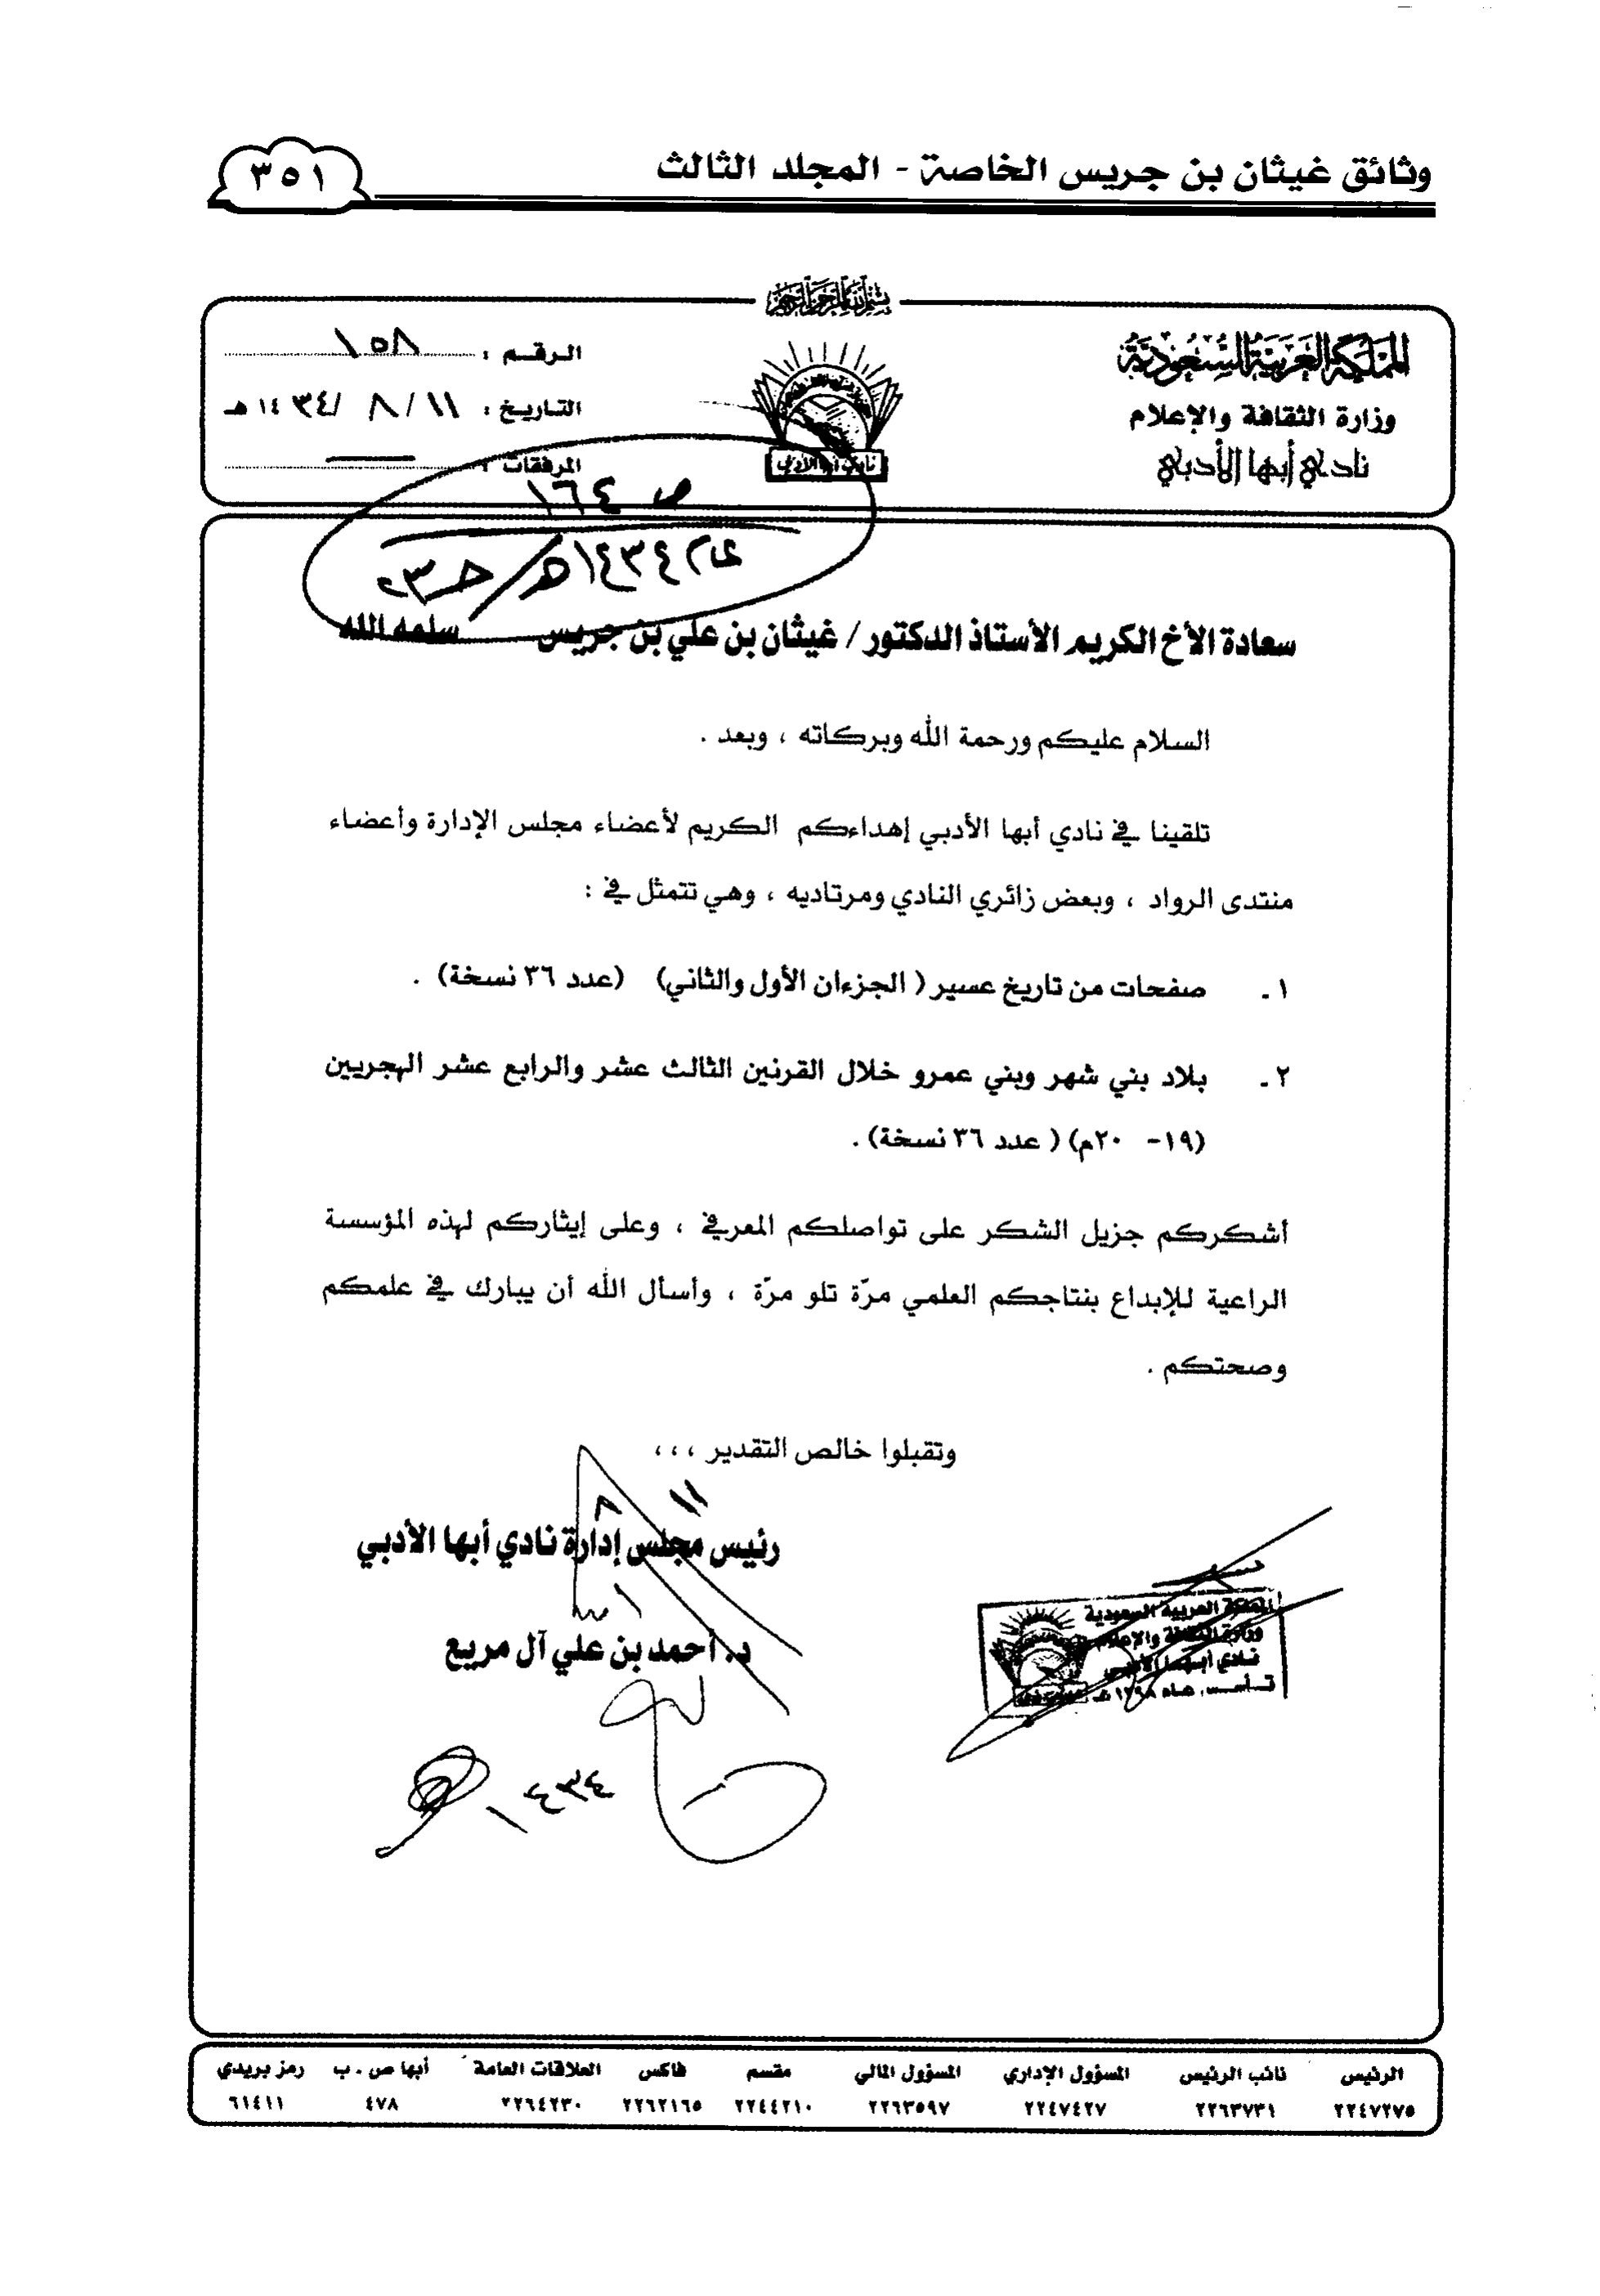 وثائق غيثان بن جريس الخاصة - المجلد الثالث
٣٥١
بسم الله الرحمن الرحيم
المملكة العربية السعودية
وزارة الثقافة والإعلام
نادي أبها الأدبي
نادي أبها الأدبي
الرقم : ١٥٨
التاريخ : ١١ / ٨ / ١٤٣٤ هـ
المرفقات :
ص ١٦٤
١٤٣٤هـ / حـ٣
سعادة الأخ الكريم الأستاذ الدكتور / غيثان بن علي بن جريس سلمه الله
السلام عليكم ورحمة الله وبركاته ، وبعد .
تلقينا في نادي أبها الأدبي إهداءكم الكريم لأعضاء مجلس الإدارة وأعضاء
منتدى الرواد ، وبعض زائري النادي ومرتاديه ، وهي تتمثل في :
١ـ صفحات من تاريخ عسير ( الجزءان الأول والثاني) (عدد ٣٦ نسخة) .
٢ـ بلاد بني شهر وبني عمرو خلال القرنين الثالث عشر والرابع عشر الهجريين
(١٩- ٢٠م) ( عدد ٣٦ نسخة) .
أشكركم جزيل الشكر على تواصلكم المعرفي ، وعلى إيثاركم لهذه المؤسسة
الراعية للإبداع بنتاجكم العلمي مرّة تلو مرّة ، وأسأل الله أن يبارك في علمكم
وصحتكم .
وتقبلوا خالص التقدير ،،،
١١ ٨
رئيس مجلس إدارة نادي أبها الأدبي
د. أحمد بن علي آل مريع
١٤٣٤
المملكة العربية السعودية
وزارة الثقافة والإعلام
نادي أبها الأدبي
تأسس عام ١٣٩٨ هـ
الرئيس نائب الرئيس المسؤول الإداري المسؤول المالي مقسم فاكس العلاقات العامة أبها ص . ب رمز بريدي
٢٢٤٧٢٧٥ ٢٢٦٣٧٣١ ٢٢٤٧٤٢٧ ٢٢٦٣٥٩٧ ٢٢٤٤٢١٠ ٢٢٦٢١٦٥ ٢٢٦٤٢٣٠ ٤٧٨ ٦١٤١١